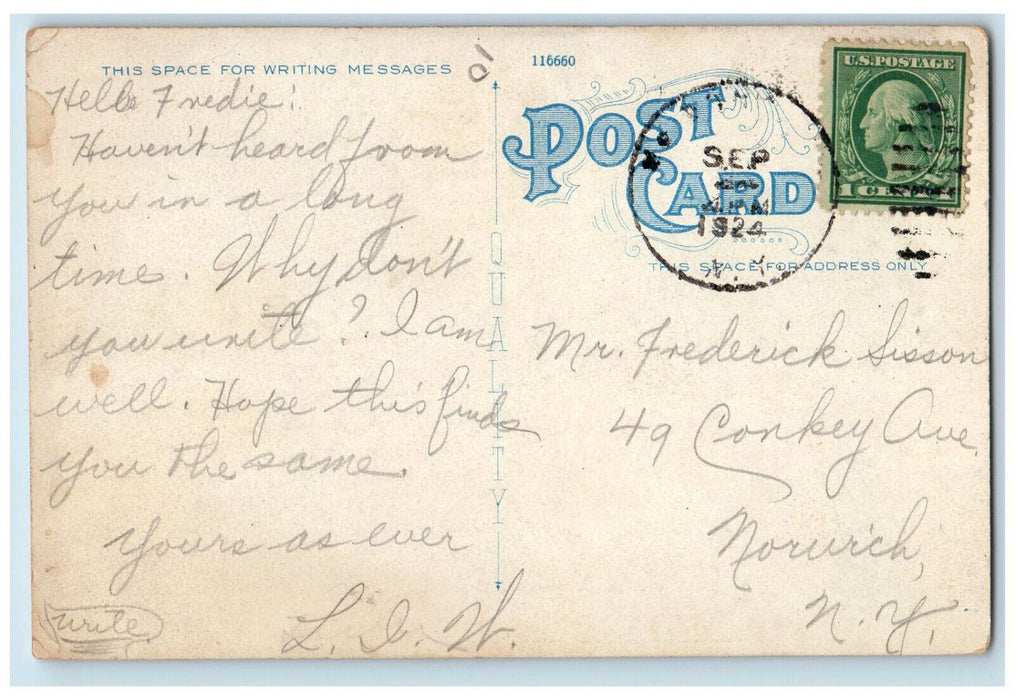 THIS SPACE FOR WRITING MESSAGES
01
Hello Fredie!
Haven't heard from
you in a long
time. Why don't
you write? I am
well. Hope this finds
you the same.
Yours as ever
L. I. W.
write
QUALITY
116660
POST
CARD
SEP
1924
N.Y.
U.S. POSTAGE
THIS SPACE FOR ADDRESS ONLY
Mr. Frederick Sisson
49 Conkey Ave.
Norwich,
N. Y.